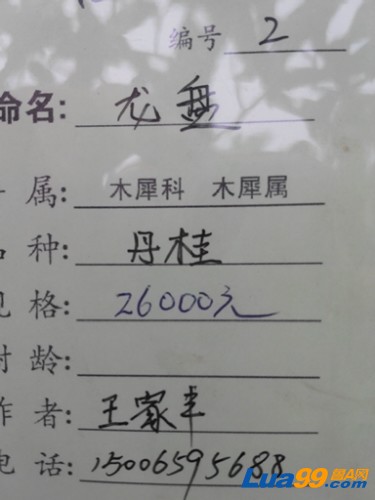 编号 2
命名: 龙盘
属: 木犀科 木犀属
种: 丹桂
格: 26000元
龄:
作者: 王家丰
电话: 15006595688
Lua99.com